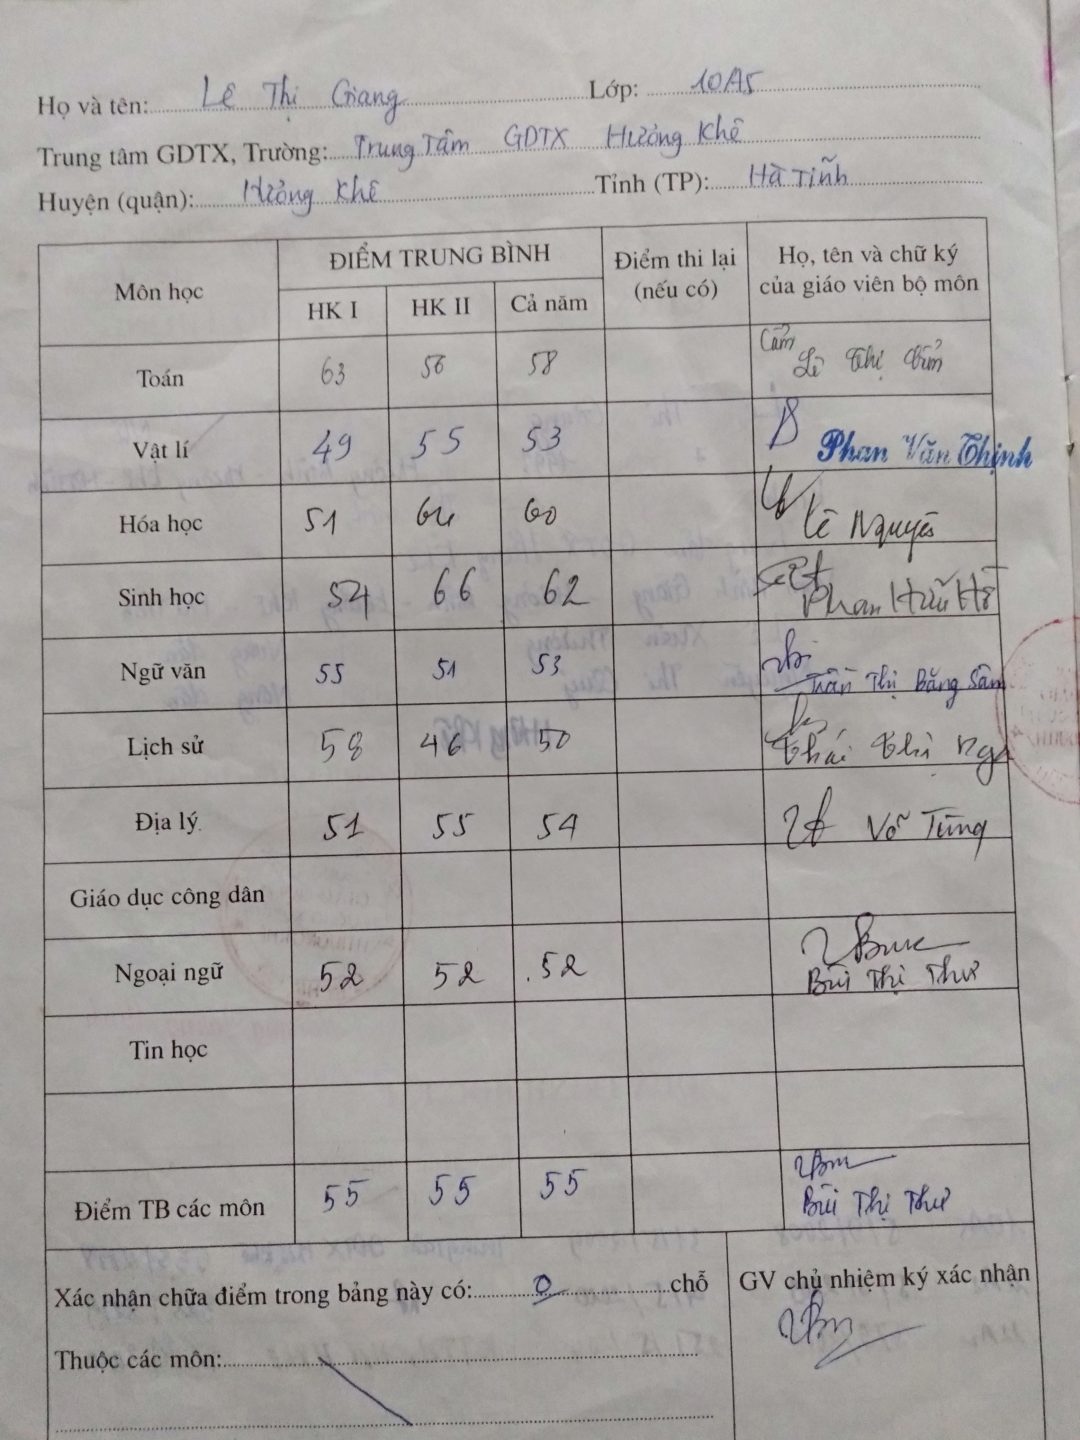 Họ và tên: Lê Thị Giang Lớp: 10A5
Trung tâm GDTX, Trường: Trung Tâm GDTX Hương Khê
Huyện (quận): Hương Khê Tỉnh (TP): Hà Tĩnh
Môn học ĐIỂM TRUNG BÌNH Điểm thi lại (nếu có) Họ, tên và chữ ký của giáo viên bộ môn
HK I HK II Cả năm
Toán 63 56 58 Cẩm Lê Thị Cẩm
Vật lí 49 55 53 Phan Văn Thịnh
Hóa học 51 64 60 Lê Nguyên
Sinh học 54 66 62 Phan Hữu
Ngữ văn 55 51 53 Trần Thị Băng Sâm
Lịch sử 58 46 50 Thái Thị Nga
Địa lý 51 55 54 Võ Tùng
Giáo dục công dân
Ngoại ngữ 52 52 52 Bùi Thị Thư
Tin học
Điểm TB các môn 55 55 55 Bùi Thị Thư
Xác nhận chữa điểm trong bảng này có: 0 chỗ GV chủ nhiệm ký xác nhận
Thuộc các môn: